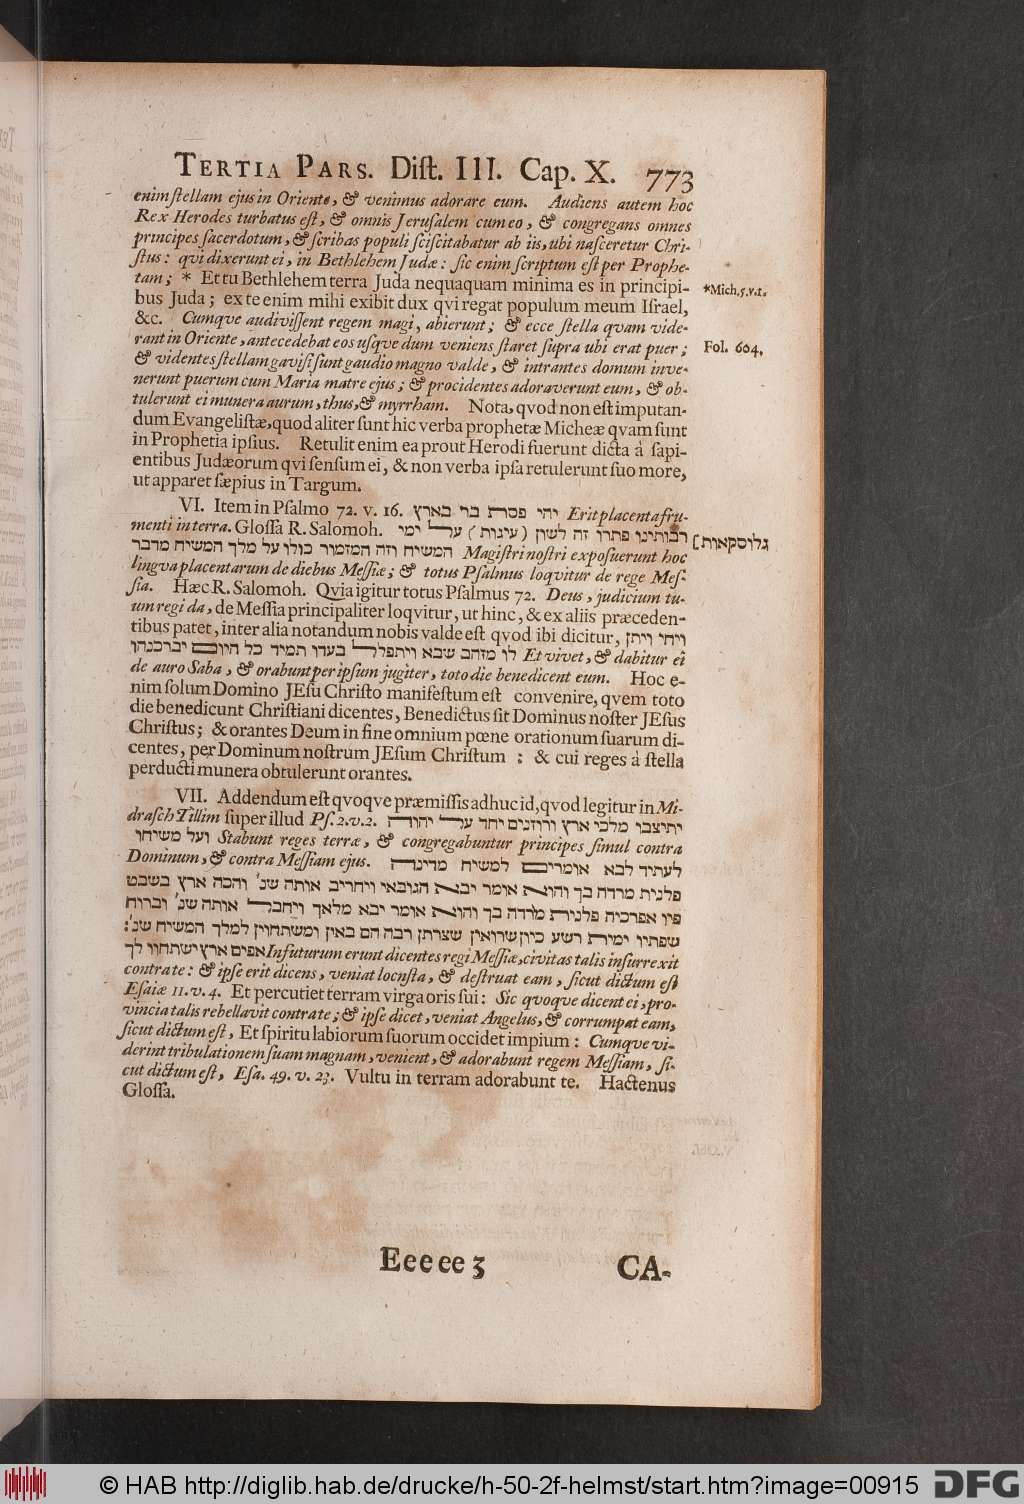 TERTIA PARS. Dist. III. Cap. X. 773
enim stellam ejus in Oriente, & venimus adorare eum. Audiens autem hoc
Rex Herodes turbatus est, & omnis Jerusalem cum eo, & congregans omnes
principes sacerdotum, & scribas populi sciscitabatur ab iis, ubi nasceretur Chri-
stus: qvi dixerunt ei, in Bethlehem Judæ: sic enim scriptum est per Prophe-
tam; * Et tu Bethlehem terra Juda nequaquam minima es in principi-
*Mich. 5. v. 1.
bus Juda; ex te enim mihi exibit dux qvi regat populum meum Israel,
&c. Cumqve audivissent regem magi, abierunt; & ecce stella qvam vide-
rant in Oriente, antecedebat eos usqve dum veniens staret supra ubi erat puer;
Fol. 604.
& videntes stellam gavisi sunt gaudio magno valde, & intrantes domum inve-
nerunt puerum cum Maria matre ejus; & procidentes adoraverunt eum, & ob-
tulerunt ei munera aurum, thus, & myrrham. Nota, qvod non est imputan-
dum Evangelistæ, quod aliter sunt hic verba prophetæ Micheæ qvam sunt
in Prophetia ipsius. Retulit enim ea prout Herodi fuerunt dicta à sapi-
entibus Judæorum qvi sensum ei, & non verba ipsa retulerunt suo more,
ut apparet sæpius in Targum.
VI. Item in Psalmo 72. v. 16. יהי פסת בר בארץ Erit placenta fru-
menti in terra. Glossa R. Salomoh. רבותינו פתרו זה לשון (עיגות) על ימי
גלוסקאות]
המשיח וזה המזמור כולו על מלך המשיח מדבר Magistri nostri exposuerunt hoc
lingva placentarum de diebus Messiæ; & totus Psalmus loqvitur de rege Mes-
sia. Hæc R. Salomoh. Qvia igitur totus Psalmus 72. Deus, judicium tu-
um regi da, de Messia principaliter loqvitur, ut hinc, & ex aliis præceden-
tibus patet, inter alia notandum nobis valde est qvod ibi dicitur, ויחי ויתן
לו מזהב שבא ויתפלל בעדו תמיד כל היום יברכנהו Et vivet, & dabitur ei
de auro Saba, & orabunt per ipsum jugiter, toto die benedicent eum. Hoc e-
nim solum Domino JEsu Christo manifestum est convenire, qvem toto
die benedicunt Christiani dicentes, Benedictus sit Dominus noster JEsus
Christus; & orantes Deum in fine omnium pœne orationum suarum di-
centes, per Dominum nostrum JEsum Christum: & cui reges à stella
perducti munera obtulerunt orantes.
VII. Addendum est qvoqve præmissis adhuc id, qvod legitur in Mi-
drasch Tillim super illud Ps. 2. v. 2. יתיצבו מלכי ארץ ורוזנים יחד על יהוה
ועל משיחו Stabunt reges terræ, & congregabuntur principes simul contra
Dominum, & contra Messiam ejus. לעתיד לבא אומרים למשיח מדינה
פלנית מרדה בך והוא אומר יבא הגובאי ויחריב אותה שנ' והכה ארץ בשבט
פיו אפרכיה פלנית מרדה בך והוא אומר יבא מלאך ויחבל אותה שנ' וברוח
שפתיו ימית רשע כיון שרואין שצרתן רבה הם באין ומשתחוין למלך המשיח שנ':
אפים ארץ ישתחוו לך In futurum erunt dicentes regi Messiæ, civitas talis insurrexit
contra te: & ipse erit dicens, veniat locusta, & destruat eam, sicut dictum est
Esaiæ 11. v. 4. Et percutiet terram virga oris sui: Sic qvoqve dicent ei, pro-
vincia talis rebellavit contra te; & ipse dicet, veniat Angelus, & corrumpat eam,
sicut dictum est, Et spiritu labiorum suorum occidet impium: Cumqve vi-
derint tribulationem suam magnam, venient, & adorabunt regem Messiam, si-
cut dictum est, Esa. 49. v. 23. Vultu in terram adorabunt te. Hactenus
Glossa.
Eeeee 3 CA-
© HAB http://diglib.hab.de/drucke/h-50-2f-helmst/start.htm?image=00915 DFG